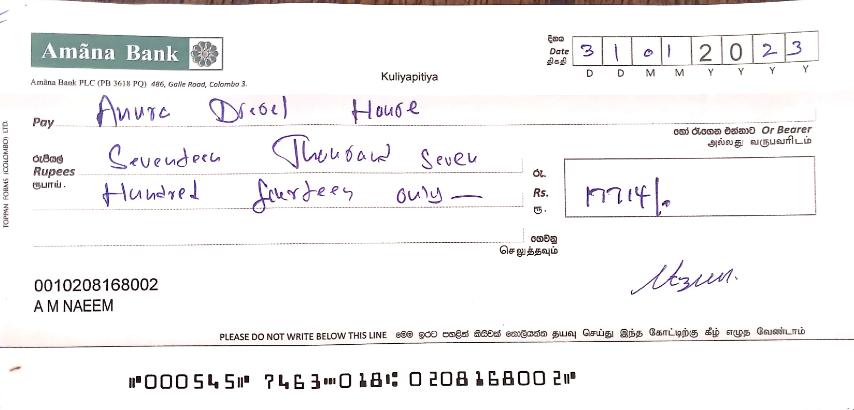 Amãna Bank
Amãna Bank PLC (PB 3618 PQ) 486, Galle Road, Colombo 3.
Kuliyapitiya
දිනය
Date
திகதி
3 1 0 1 2 0 2 3
D D M M Y Y Y Y
Pay Anura Diesel House
හෝ රැගෙන එන්නාට Or Bearer
அல்லது வருபவரிடம்
රුපියල්
Rupees
ரூபாய்.
Seventeen Thousand Seven
Hundred fourteen only —
රු.
Rs.
ரூ.
17714/.
ගෙවනු
செலுத்தவும்
TOPPAN FORMS (COLOMBO) LTD.
0010208168002
A M NAEEM
PLEASE DO NOT WRITE BELOW THIS LINE මෙම ඉරට පහළින් කිසිවක් නොලියන්න தயவு செய்து இந்த கோட்டிற்கு கீழ் எழுத வேண்டாம்
⑈000545⑈ 7463⑉018⑆ 0208168002⑈